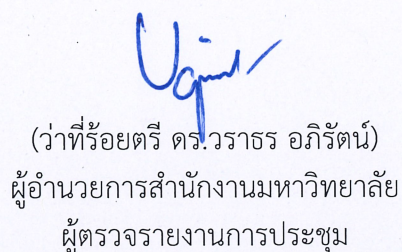 (ว่าที่ร้อยตรี ดร.วราธร อภิรัตน์)
ผู้อำนวยการสำนักงานมหาวิทยาลัย
ผู้ตรวจรายงานการประชุม